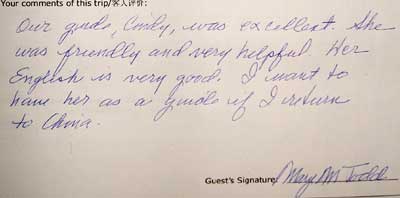 Your comments of this trip/客人评价:
Our guide, Cindy, was excellent. She
was friendly and very helpful. Her
English is very good. I want to
have her as a guide if I return
to China.
Guest's Signature Mary M Todd